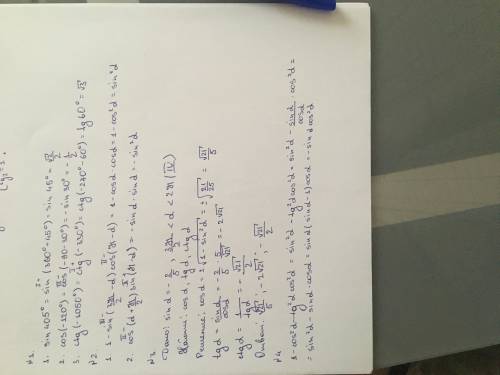 N1
1. sin 405° = sin (360°+45°) = sin 45° = √2/2
2. cos(-120°) = cos(-90-30°) = -sin 30° = -1/2
3. ctg(-1050°) = ctg(-330°) = ctg(-270°-60°) = tg 60° = √3
N2
1. 1 - sin(3π/2 - α) cos(π - α) = 1 - cos α · cos α = 1 - cos²α = sin²α
2. cos(α + π/2) sin(π - α) = -sin α · sin α = -sin²α
N3
Дано: sin α = -2/5, 3π/2 < α < 2π (IV)
Найти: cos α, tg α, ctg α
Решение: cos α = ±√(1 - sin²α) = ±√(21/25) = √21/5
tg α = sin α/cos α = -2/5 · 5/√21 = -2√21
ctg α = 1/tg α = -√21/2
Ответ: √21/5; -2√21; -√21/2
N4
1 - cos²α - tg²α cos²α = sin²α - tg²α cos²α = sin²α - sin α/cos α · cos²α =
= sin²α - sin α · cos α = sin α (sin α - 1) cos α = -sin α cos²α